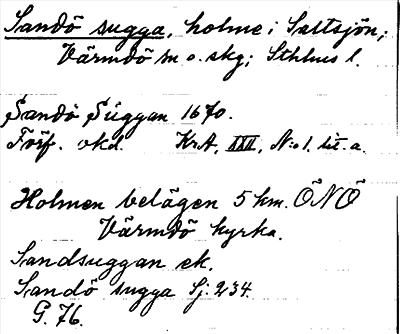 Sandö sugga, holme i Saltsjön,
Värmdö sn o. skg; Sthlms l.
Sandö Suggan 1670.
Förf. okd. KrA, XXX, N:o 1. lit. a.
Holmen belägen 5 km. ÖNÖ
Värmdö kyrka.
Sandsuggan ek.
Sandö sugga Sj. 234.
G. 76.